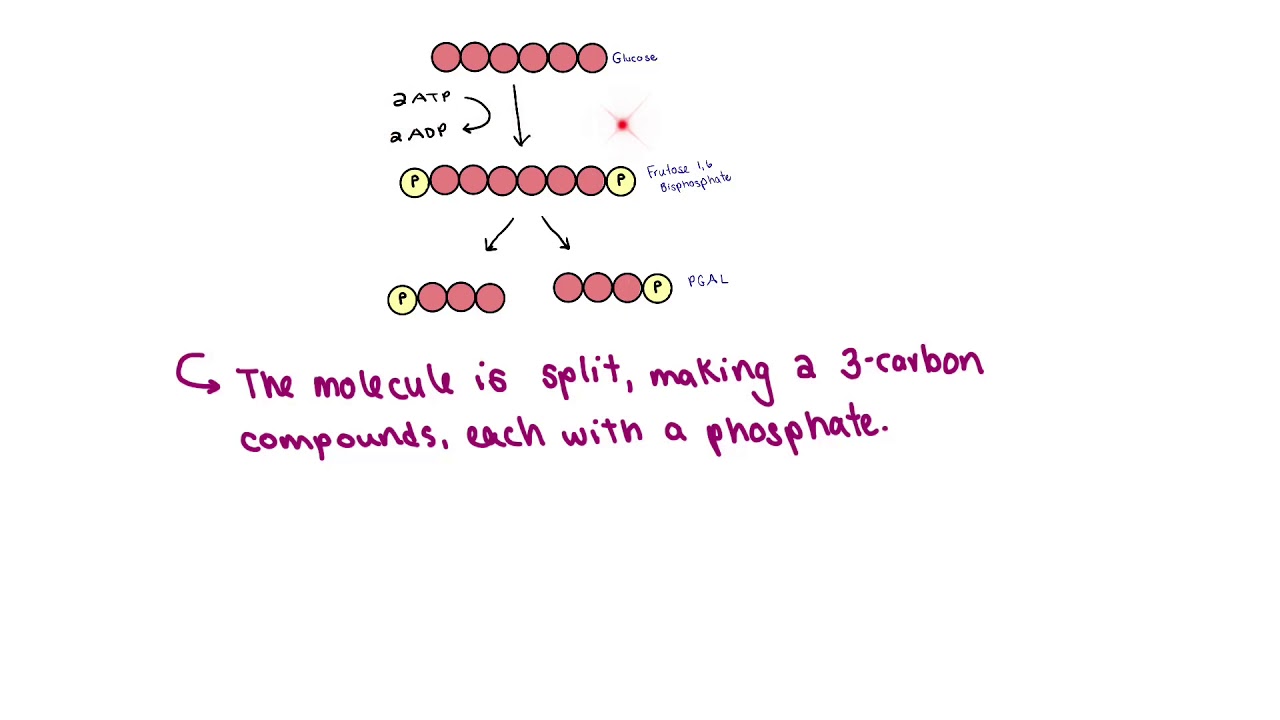 Glucose
2 ATP
2 ADP
P
P
Frutose 1,6
Bisphosphate
P
P
PGAL
The molecule is split, making 2 3-carbon
compounds, each with a phosphate.